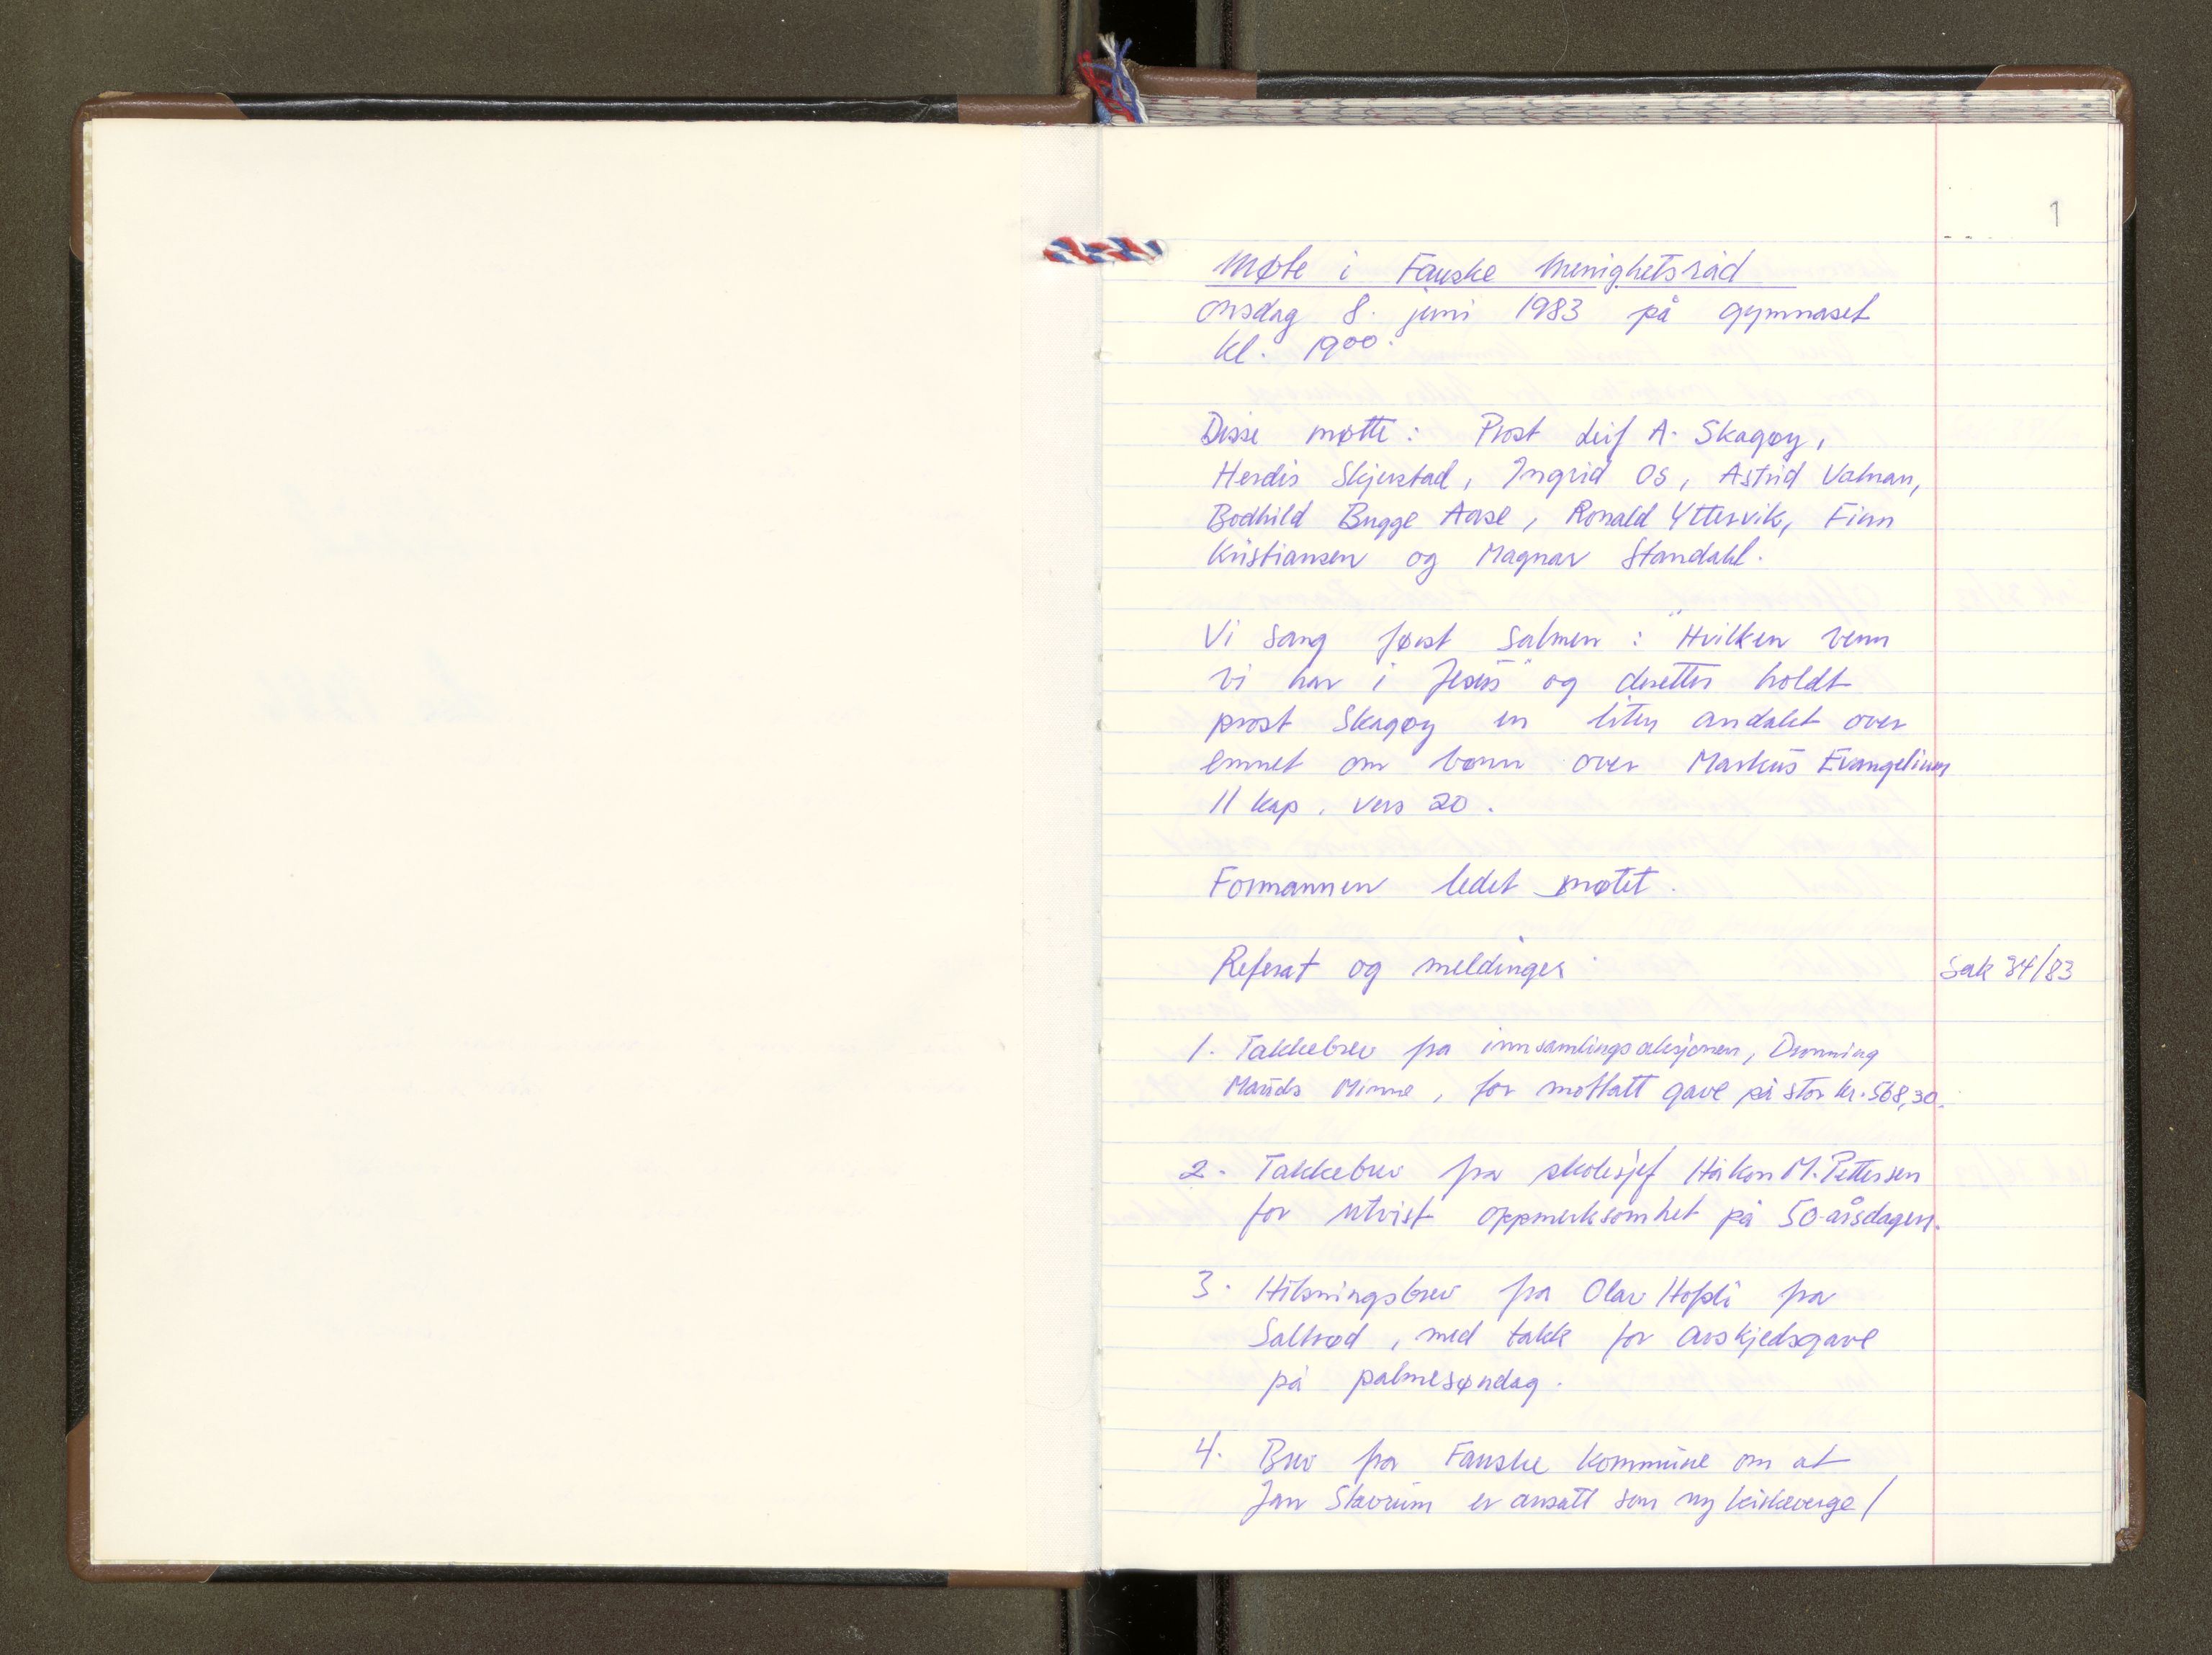 1
Møte i Fauske menighetsråd
onsdag 8. juni 1983 på gymnaset
kl. 19⁰⁰.
Disse møtte: Prost Leif A. Skagøy,
Herdis Skjerstad, Ingrid Os, Astrid Valnan,
Bodhild Bugge Aase, Ronald Yttervik, Finn
Kristiansen og Magnar Standahl.
Vi sang først salmen: "Hvilken venn
vi har i Jesus" og deretter holdt
prost Skagøy en liten andakt over
emnet om bønn over Markus Evangelium
11 kap. vers 20.
Formannen ledet møtet.
Referat og meldinger Sak 34/83
1. Takkebrev fra innsamlingsaksjonen, Dronning
Mauds Minne, for mottatt gave på stor kr. 568,30.
2. Takkebrev fra skolesjef Håkon M. Pettersen
for utvist oppmerksomhet på 50-årsdagen.
3. Hilsningsbrev fra Olav Hofsli fra
Saltrød, med takk for avskjedsgave
på palmesøndag.
4. Brev fra Fauske kommune om at
Jan Skorum er ansatt som ny kirkeverge/